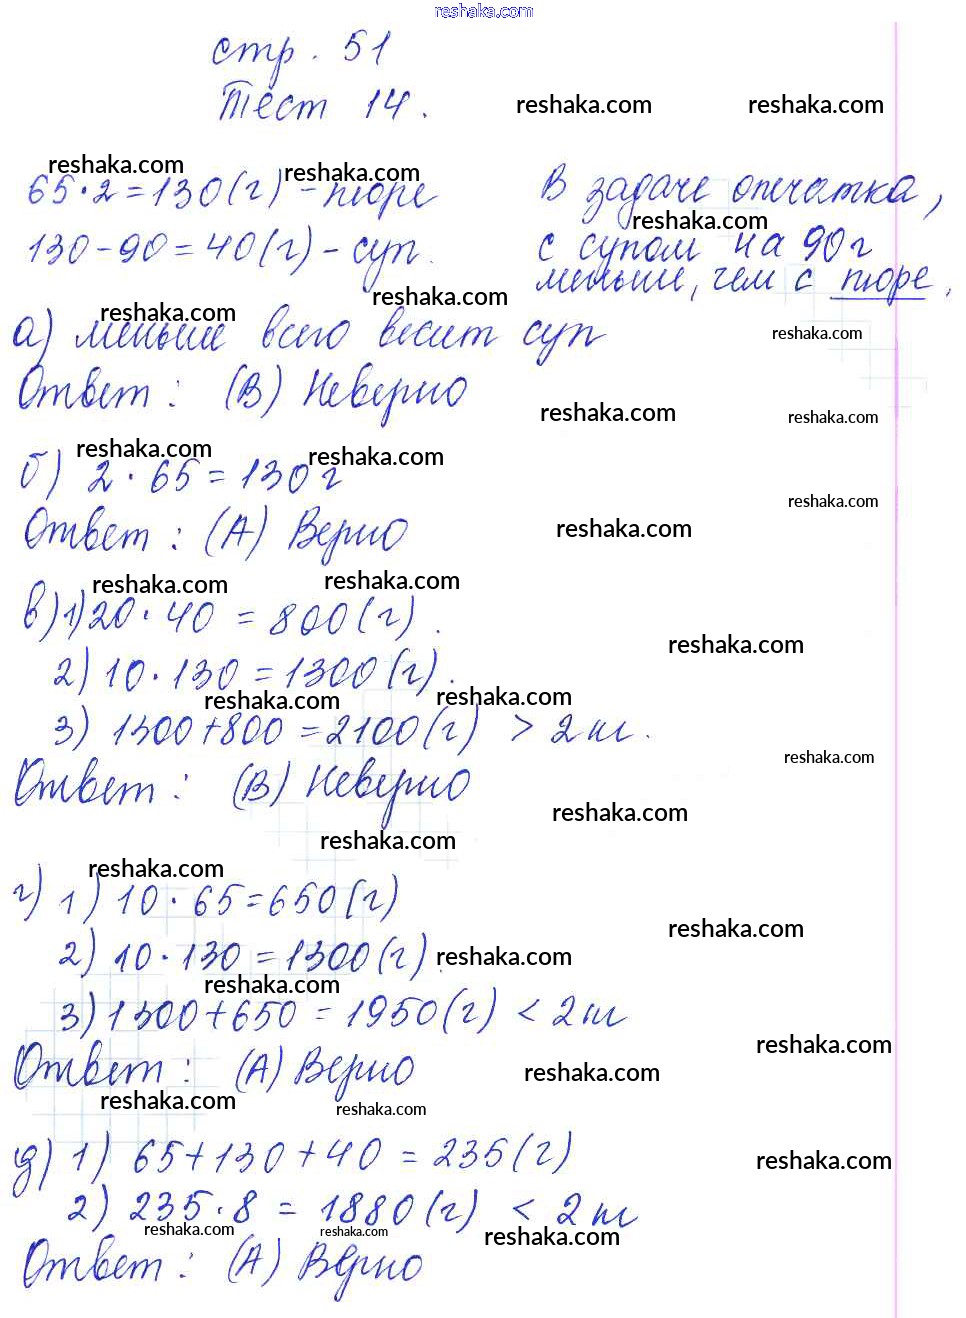 reshaka.com
стр. 51
Тест 14.
reshaka.com reshaka.com
reshaka.com reshaka.com
65·2=130(г)-пюре
130-90=40(г)-суп.
В задаче опечатка,
reshaka.com
с супом на 90г
меньше, чем с пюре.
reshaka.com reshaka.com
а) меньше всего весит суп
reshaka.com
Ответ: (В) Неверно
reshaka.com reshaka.com
reshaka.com reshaka.com
б) 2·65=130г
reshaka.com
Ответ: (А) Верно
reshaka.com
reshaka.com reshaka.com
в) 1) 20·40=800(г).
reshaka.com
2) 10·130=1300(г).
reshaka.com reshaka.com
3) 1300+800=2100(г) > 2кг.
reshaka.com
Ответ: (В) Неверно
reshaka.com
reshaka.com
reshaka.com
г) 1) 10·65=650(г)
reshaka.com
2) 10·130=1300(г).
reshaka.com
reshaka.com
3) 1300+650=1950(г) < 2кг
reshaka.com
Ответ: (А) Верно
reshaka.com
reshaka.com reshaka.com
д) 1) 65+130+40=235(г)
reshaka.com
2) 235·8=1880(г) < 2кг
reshaka.com reshaka.com reshaka.com
Ответ: (А) Верно